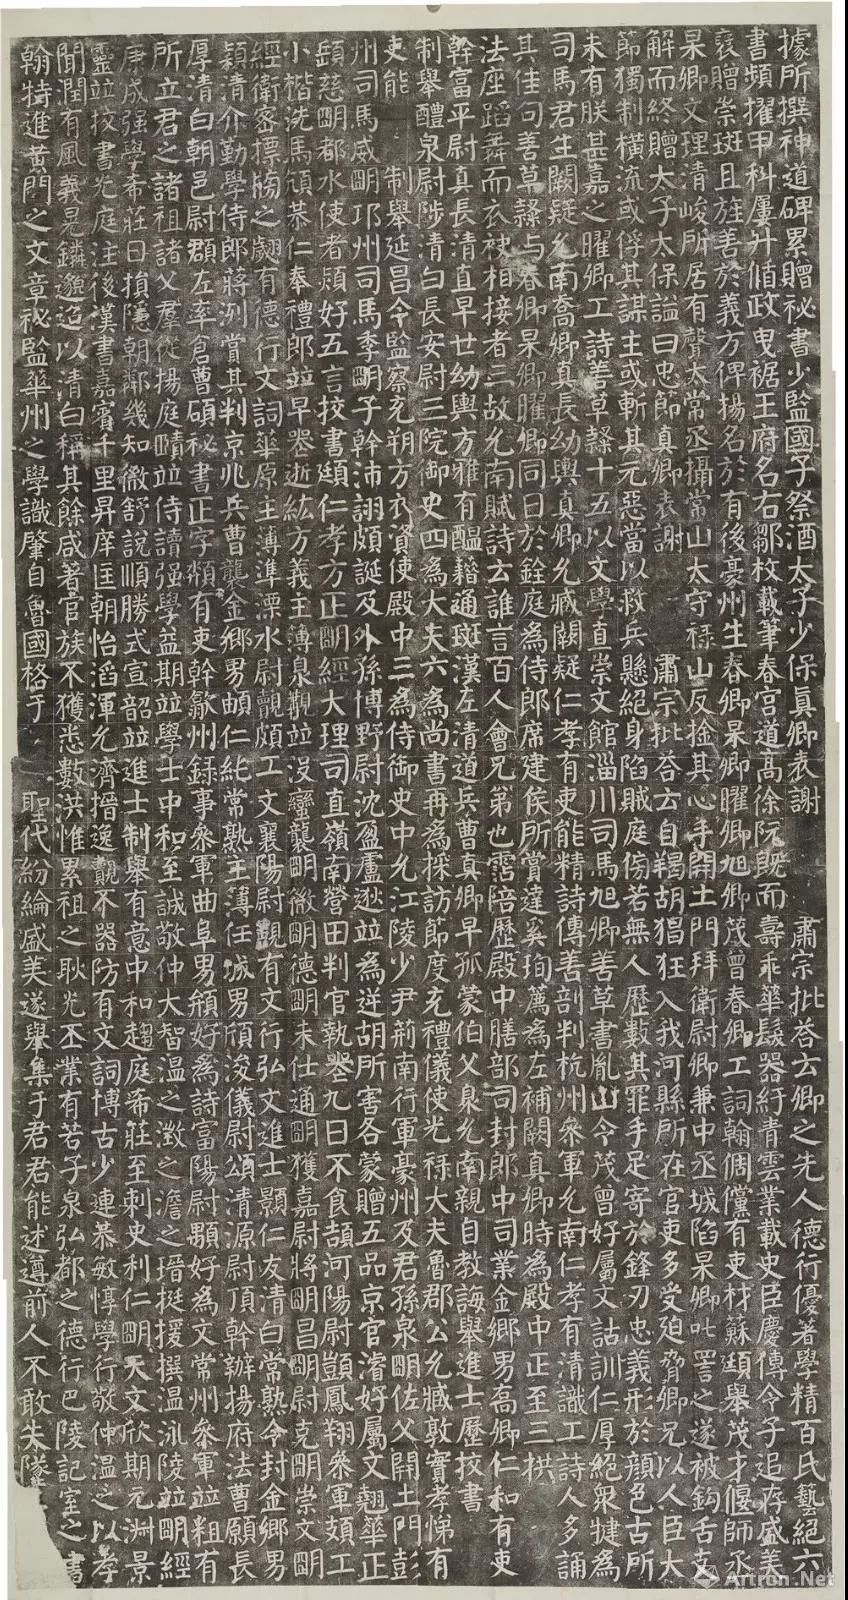 據所撰神道碑累贈祕書少監國子祭酒太子少保真卿表謝 肅宗批荅云卿之先人德行優著學精百氏藝絕六
書頻擢甲科屢升循政曳裾王府名右鄒枚載筆春宮道高徐阮既而壽乖華髮器紆青雲業載史臣慶傳令子追存盛美
褒贈崇班且旌善於義方俾揚名於有後豪州生春卿杲卿曜卿旭卿茂曾春卿工詞翰倜儻有吏材蘇頲舉茂才偃師丞
杲卿文理清峻所居有聲太常丞攝常山太守祿山反捡其心手開土門拜衛尉卿兼中丞城陷杲卿叱詈之遂被鉤舌支
解而終贈太子太保謚曰忠節真卿表謝 肅宗批荅云自羯胡猖狂入我河縣所在官吏多受迫脅卿兄以人臣大
節獨制橫流或俘其謀主或斬其元惡當以救兵懸絕身陷賊庭傍若無人歷數其罪手足寄於鋒刃忠義形於顏色古所
未有朕甚嘉之曜卿工詩善草隸十五以文學直崇文館淄川司馬旭卿善草書胤山令茂曾好屬文詁訓仁厚絕眾犍為
司馬君生闕疑允南喬卿真長幼輿真卿允臧闕疑仁孝有吏能精詩傳善剖判杭州參軍允南仁孝有清識工詩人多誦
其佳句善草隸与春卿杲卿曜卿同日於銓庭為侍郎席建侯所賞達奚珣薦為左補闕真卿時為殿中正至三拱
法座蹈舞而衣袂相接者三故允南賦詩云誰言百人會兄弟也霑陪歷殿中膳部司封郎中司業金鄉男喬卿仁和有吏
幹富平尉真長清直早世幼輿方雅有醞藉通班漢左清道兵曹真卿早孤蒙伯父泉允南親自教誨舉進士歷挍書
制舉醴泉尉陟清白長安尉三院御史四為大夫六為尚書再為採訪節度充禮儀使光祿大夫魯郡公允臧敦實孝悌有
吏能 制舉延昌令監察充朔方衣資使殿中三為侍御史中允江陵少尹荊南行軍豪州及君孫泉明佐父開土門彭
州司馬威明邛州司馬季明子幹沛詡頗誕及外孫博野尉沈盈盧逖並為逆胡所害各蒙贈五品京官濬好屬文翹華正
頤慈明都水使者熲好五言挍書頲仁孝方正明經大理司直嶺南營田判官執喪九日不食頡河陽尉顗鳳翔參軍頍工
小楷洗馬頎恭仁奉禮郎並早喪逝紘方義主薄泉覬並沒蠻襲明徽明德明未仕通明獲嘉尉將明昌明尉克明崇文明
經衛密摽牓之翽有德行文詞華原主薄準溧水尉覿頗工文襄陽尉覢有文行弘文進士顯仁友清白常熟令封金鄉男
穎清介勤學侍郎蔣洌賞其判京兆兵曹襲金鄉男頔仁純常熟主薄任城男頎浚儀尉頌清源尉頂幹辦揚府法曹願長
厚清白朝邑尉頵左率倉曹碩秘書正字頖有吏幹歙州録事參軍曲阜男䫀好為詩富陽尉顒好為文常州參軍並粗有
所立君之諸祖諸父羣從揚庭賾並侍讀强學益期並學士中和至誠敬仲大智溫之澂之澹之瑨挺援撰溫泳陵並明經
康成强學希莊日損隱朝鄰幾知微舒說順勝式宣韶並進士制舉有意中和趨庭希莊至剌史利仁明天文欣期元淋景
靈並挍書光庭注後漢書嘉賓千里昇庠匡朝怡滔渾允濟搢逸覿不器防有文詞博古少連恭敏惇學行敬仲溫之以孝
聞潤有風義晃鏻邈迨以清白稱其餘咸著官族不獲悉數洪惟累祖之耿光丕業有若子泉弘都之德行巴陵記室之書
翰特進黃門之文章祕監華州之學識肇自魯國格于 聖代紛綸盛美遂舉集于君君能述遵前人不敢失墜
Artron.Net